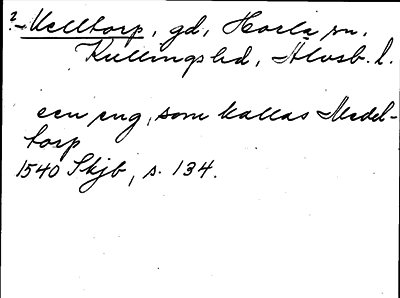 ?-Melltorp, gd, Horla sn,
Kullings hd, Älvsb. l.
een eng, som kallas Medel-
torp
1540 Skjb, s. 134.